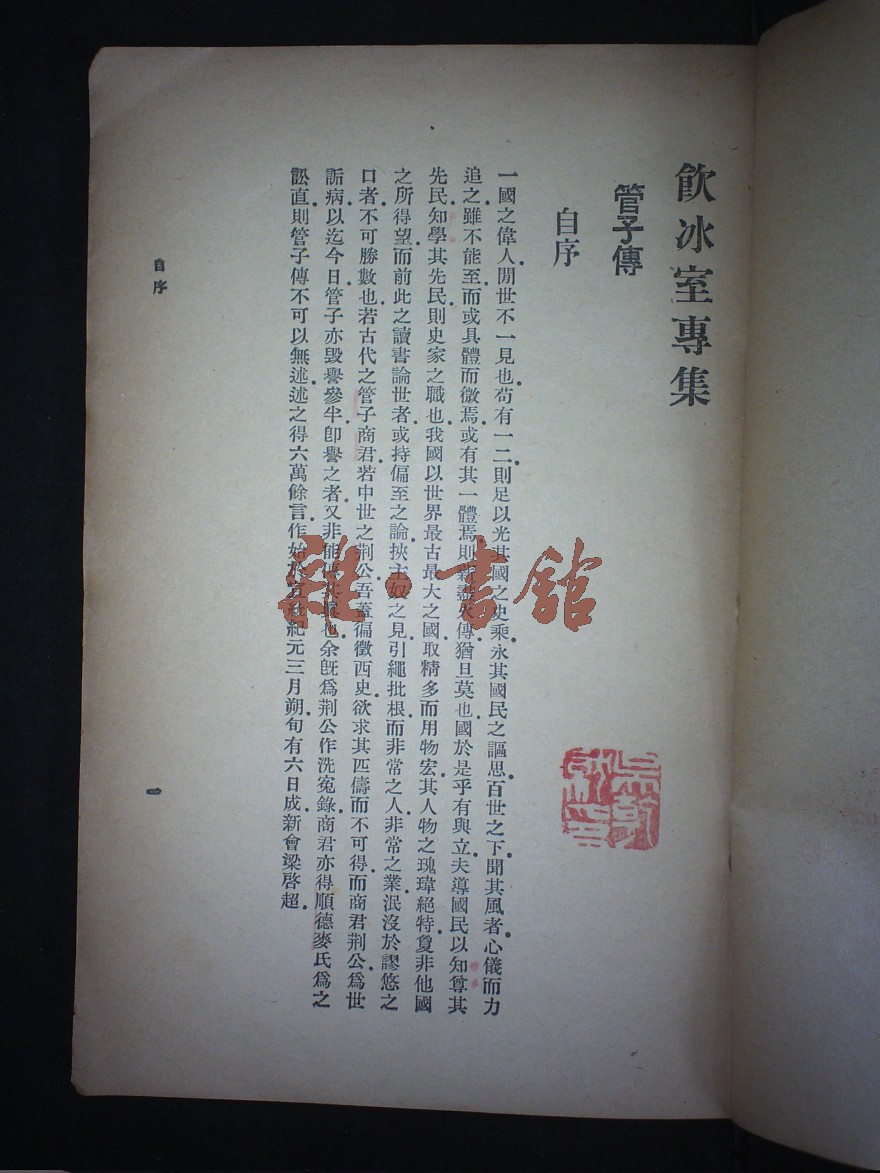 飲冰室專集
管子傳
自序
一國之偉人間世不一見也苟有一二則足以光其國之史乘永其國民之謳思百世之下聞其風者心儀而力
追之雖不能至而或具體而微焉或有其一體焉則薪盡火傳猶旦莫也國於是乎有與立夫導國民以知尊其
先民知學其先民則史家之職也我國以世界最古最大之國取精多而用物宏其人物之瑰瑋絕特夐非他國
之所得望而前此之讀書論世者或持偏至之論挾主奴之見引繩批根而非常之人非常之業泯沒於謬悠之
口者不可勝數也若古代之管子商君若中世之荆公吾蓋徧徵西史欲求其匹儔而不可得而商君荆公爲世
詬病以迄今日管子亦毀譽參半卽譽之者又非能也余旣爲荆公作洗冤錄商君亦得順德麥氏爲之
訟直則管子傳不可以無述述之得六萬餘言作始於宣紀元三月朔旬有六日成新會梁啓超
自序
一
雜·書館